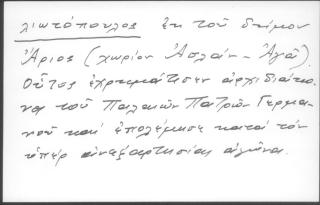 λιωτόπουλος ἐκ τοῦ δήμου
Ἄριος (χωρίον Ἀσλάν-Ἀγᾶ).
Οὗτος ἐχρημάτισεν ἀρχιδιάκο-
νος τοῦ Παλαιῶν Πατρῶν Γερμα-
νοῦ καί ἐπολέμησε κατά τόν
ὑπέρ ἀνεξαρτησίας ἀγῶνα.